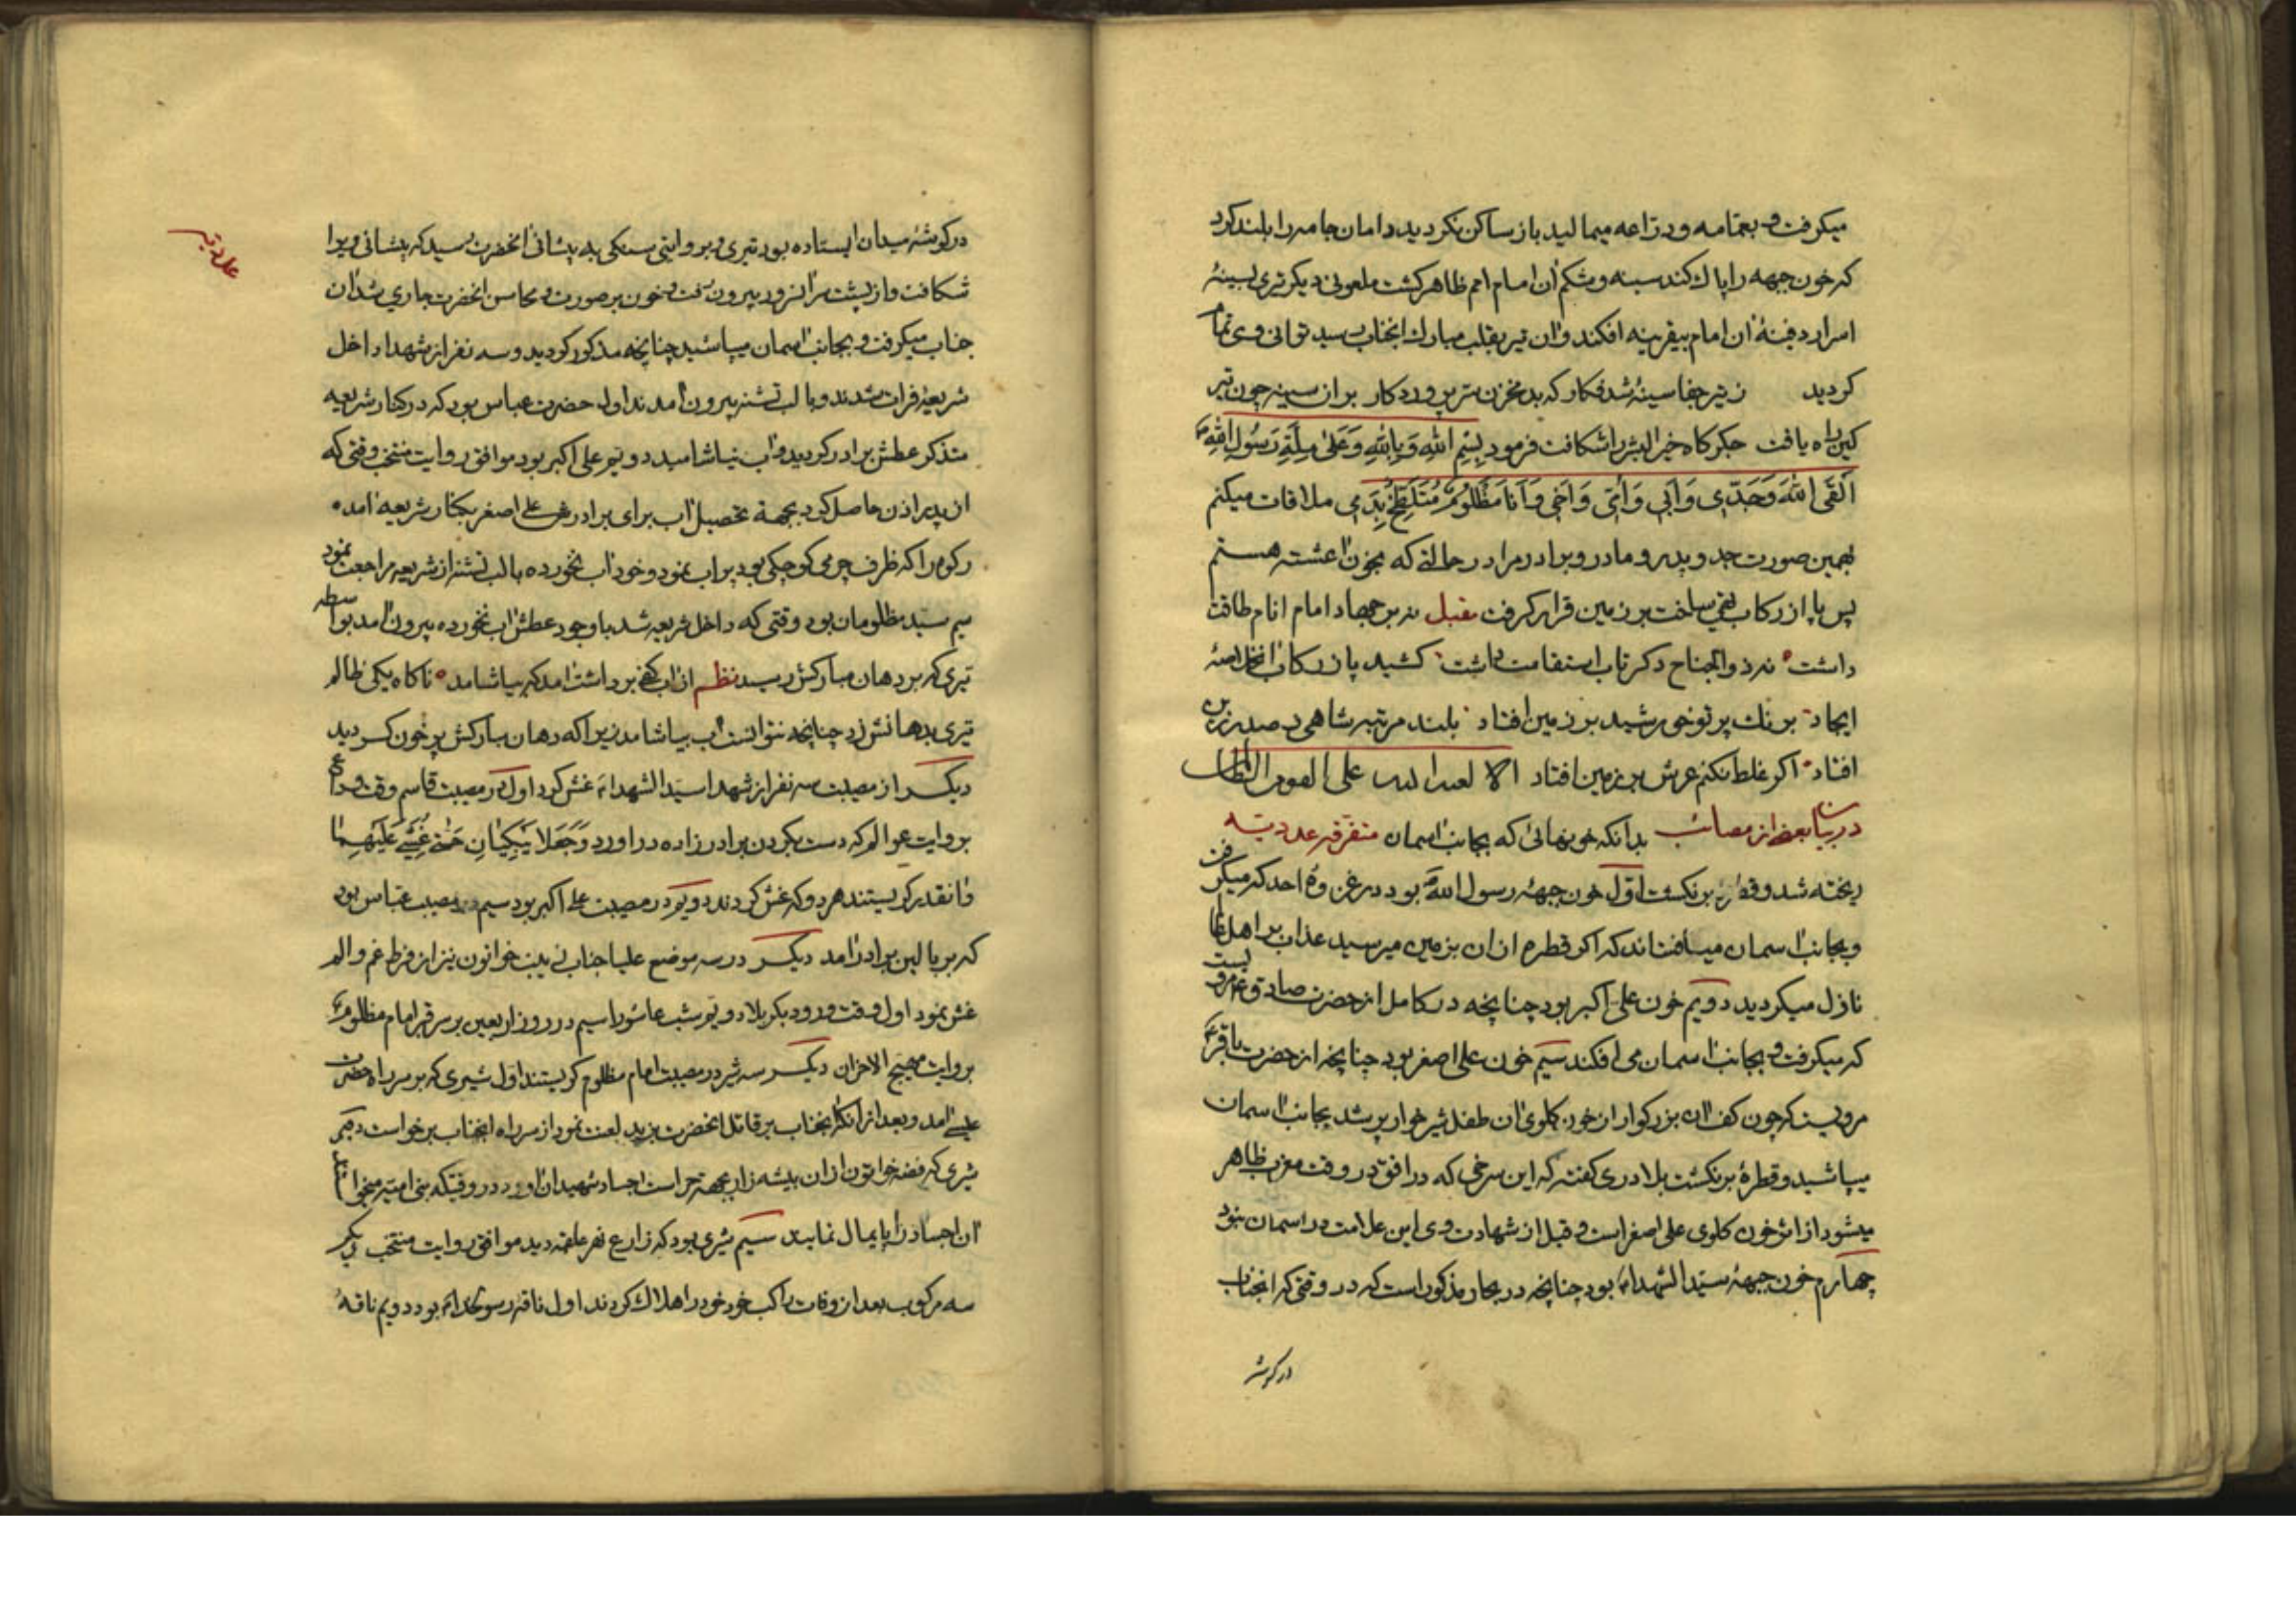 میکرفت و بعمامه و دراعه میمالید باز ساکن نکردید دامان جامه را بلند کرد
که خون جبهه را پاک کند سینه و شکم ان امام امم ظاهر کشت ملعونی دیکر تیری بسینهٔ
اسرار دفینهٔ ان امام بیقرینه افکند و ان تیر بقلب مبارک انجناب رسید توانی وی تمام
کردید زتیر جفا سینهٔ شد فکار که بد مخزن سر پروردکار بران سینه چون تیر
کین راه یافت جکرکاه خیر البشر را شکافت فرمود بِسْمِ اللهِ وَبِاللهِ وَعَلیٰ مِلَّةِ رَسُولِ اللهِ
اَلْقَی اللهَ وَجَدّی وَاَبی وَاُمّی وَاَخی وَاَنَا مَظْلُومٌ مُتَلَطِّخٌ بِدَمی ملاقات میکنم
بهمین صورت جد و پدر و مادر و برادر مرا در حالتی که بخون اغشته هستم
پس پا از رکاب تهی ساخت بر زمین قرار کرفت مقبل نه بر جهاد امام انام طاقت
داشت نه ذوالجناح دکر تاب استقامت داشت کشید پا ز رکاب ان خلاصهٔ
ایجاد برنک پرتو خورشید بر زمین افتاد بلند مرتبه شاهی ز صدر زین
افتاد اکر غلط نکنم عرش بر زمین افتاد الا لعنة الله علی القوم الظالمین
در بیان بعضی از مصائب بدانکه خونهائی که بجانب اسمان متفرقه عددیه
ریخته شد و قطرهٔ برنکشت اوّل خون جبههٔ رسول الله بود در غزوهٔ احد که میکرفت
و بجانب اسمان میافشاند که اکر قطره از ان بزمین میرسید عذاب بر اهل انجا
نازل میکردید دویم خون علی اکبر بود چنانچه در کامل از حضرت صادق ع مرویست
که میکرفت و بجانب اسمان می افکند سیم خون علی اصغر بود چنانچه از حضرت باقر ع
مرویست که چون کف ان بزرکوار از خون کلوی ان طفل شیرخوار پر شد بجانب اسمان
میپاشید و قطرهٔ برنکشت بلاذری کفته که این سرخی که در افق در وقت مغرب ظاهر
میشود از اثر خون کلوی علی اصغر است و قبل از شهادت وی این علامت در اسمان نبود
چهارم خون جبههٔ سیّد الشهداء بود چنانچه در بحار مذکور است که در وقتی که انجناب
در کوشهٔ
عددیه
در کوشهٔ میدان ایستاده بود تیری و بروایتی سنکی به پیشانی انحضرت رسید که پیشانی ویرا
شکافت و از پشت سر انسرور بیرون رفت و خون بر صورت و محاسن انحضرت جاری شد ان
جناب میکرفت و بجانب اسمان میپاشید چنانچه مذکور کردید و سه نفر از شهدا داخل
شریعهٔ فرات شدند و با لب تشنه بیرون امدند اول حضرت عباس بود که در کنار شریعه
متذکر عطش برادر کردید و اب نیاشامید دویم علی اکبر بود موافق روایت منتخب وقتی که
از پدر اذن حاصل کرد بجهة تحصیل اب برای برادرش علی اصغر بکنار شریعه امده
رکوه را که ظرف چرمی کوچکی بود پر اب نمود و خود اب نخورده با لب تشنه از شریعه مراجعت نمود
سیم سیّد مظلومان بود وقتی که داخل شریعه شد با وجود عطش اب نخورده بیرون امد بواسطه
تیری که بر دهان مبارکش رسید نظم از اب کفی برداشت امد که بیاشامد ناکاه یکی ظالم
تیری بدهانش زد چنانچه نتوانست اب بیاشامد زیرا که دهان مبارکش پر خون کردید
دیکر از مصیبت سه نفر از شهدا سیّد الشهداء غش کرد اول در مصیبت قاسم وقت وداع
بروایت عوالم که دست بکردن برادرزاده دراورد وَجَعَلا یَبْکِیانِ حَتّیٰ غُشِیَ عَلَیْهِما
و انقدر کریستند هر دو که غش کردند دویم در مصیبت علی اکبر بود سیم در مصیبت عباس بود
که بر بالین برادر امد دیکر در سه موضع علیا جناب زینب خواتون نیز از فرط غم و الم
غش نمود اول وقت ورود بکربلا دویم شب عاشورا سیم در روز اربعین بر سر قبر امام مظلوم
بروایت مهیج الاحزان دیکر سه شیر در مصیبت امام مظلوم کریستند اول شیری که بر سر راه حضرت
عیسی امد و بعد از انکه انجناب بر قاتل انحضرت یزید لعنت نمود از سر راه انجناب برخواست دویم
شیری که فضه خواتون از ان بیشه زار بجهة حراست اجساد شهیدان اورد در وقتیکه بنی امیه میخواستند
ان اجساد را پایمال نمایند سیم شیری بود که زارع نهر علقمه دید موافق روایت منتخب دیکر
سه مرکوب بعد از وفات راکب خود خود را هلاک کردند اول ناقهٔ رسولخدا بود دویم ناقهٔ